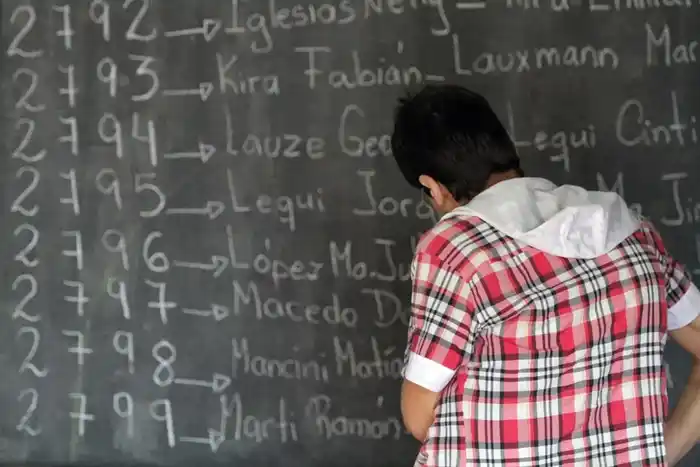 2792→Iglesios
2793→Kira Fabián_Lauxmann Mar
2794→Lauze Geo Lequi Cinti
2795→Lequi Jorg Ma Ji
2796→López Ma. Ju
2797→Macedo Da
2798→Mancini Matía
2799→Marti Ramón